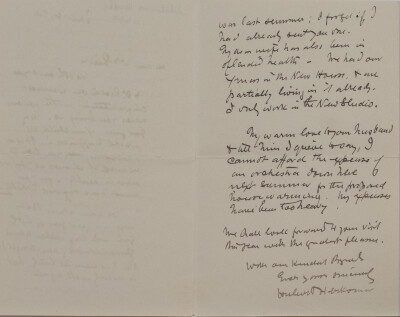 was last summer; I forget if I
had already sent you one.
My dear wife has also been in
splendid health – We had our
Xmas in the New House, & are
partially living in it already.
I only work in the New Studio.
My warm love to your husband
& tell him I grieve to say, I
cannot afford the expenses of
an orchestra down here
next summer for the proposed
house-warming. My expenses
have been too heavy.
We shall look forward to your visit
this year with the greatest pleasure.
With our kindest Regards
Ever yours sincerely
Hubert Herkomer